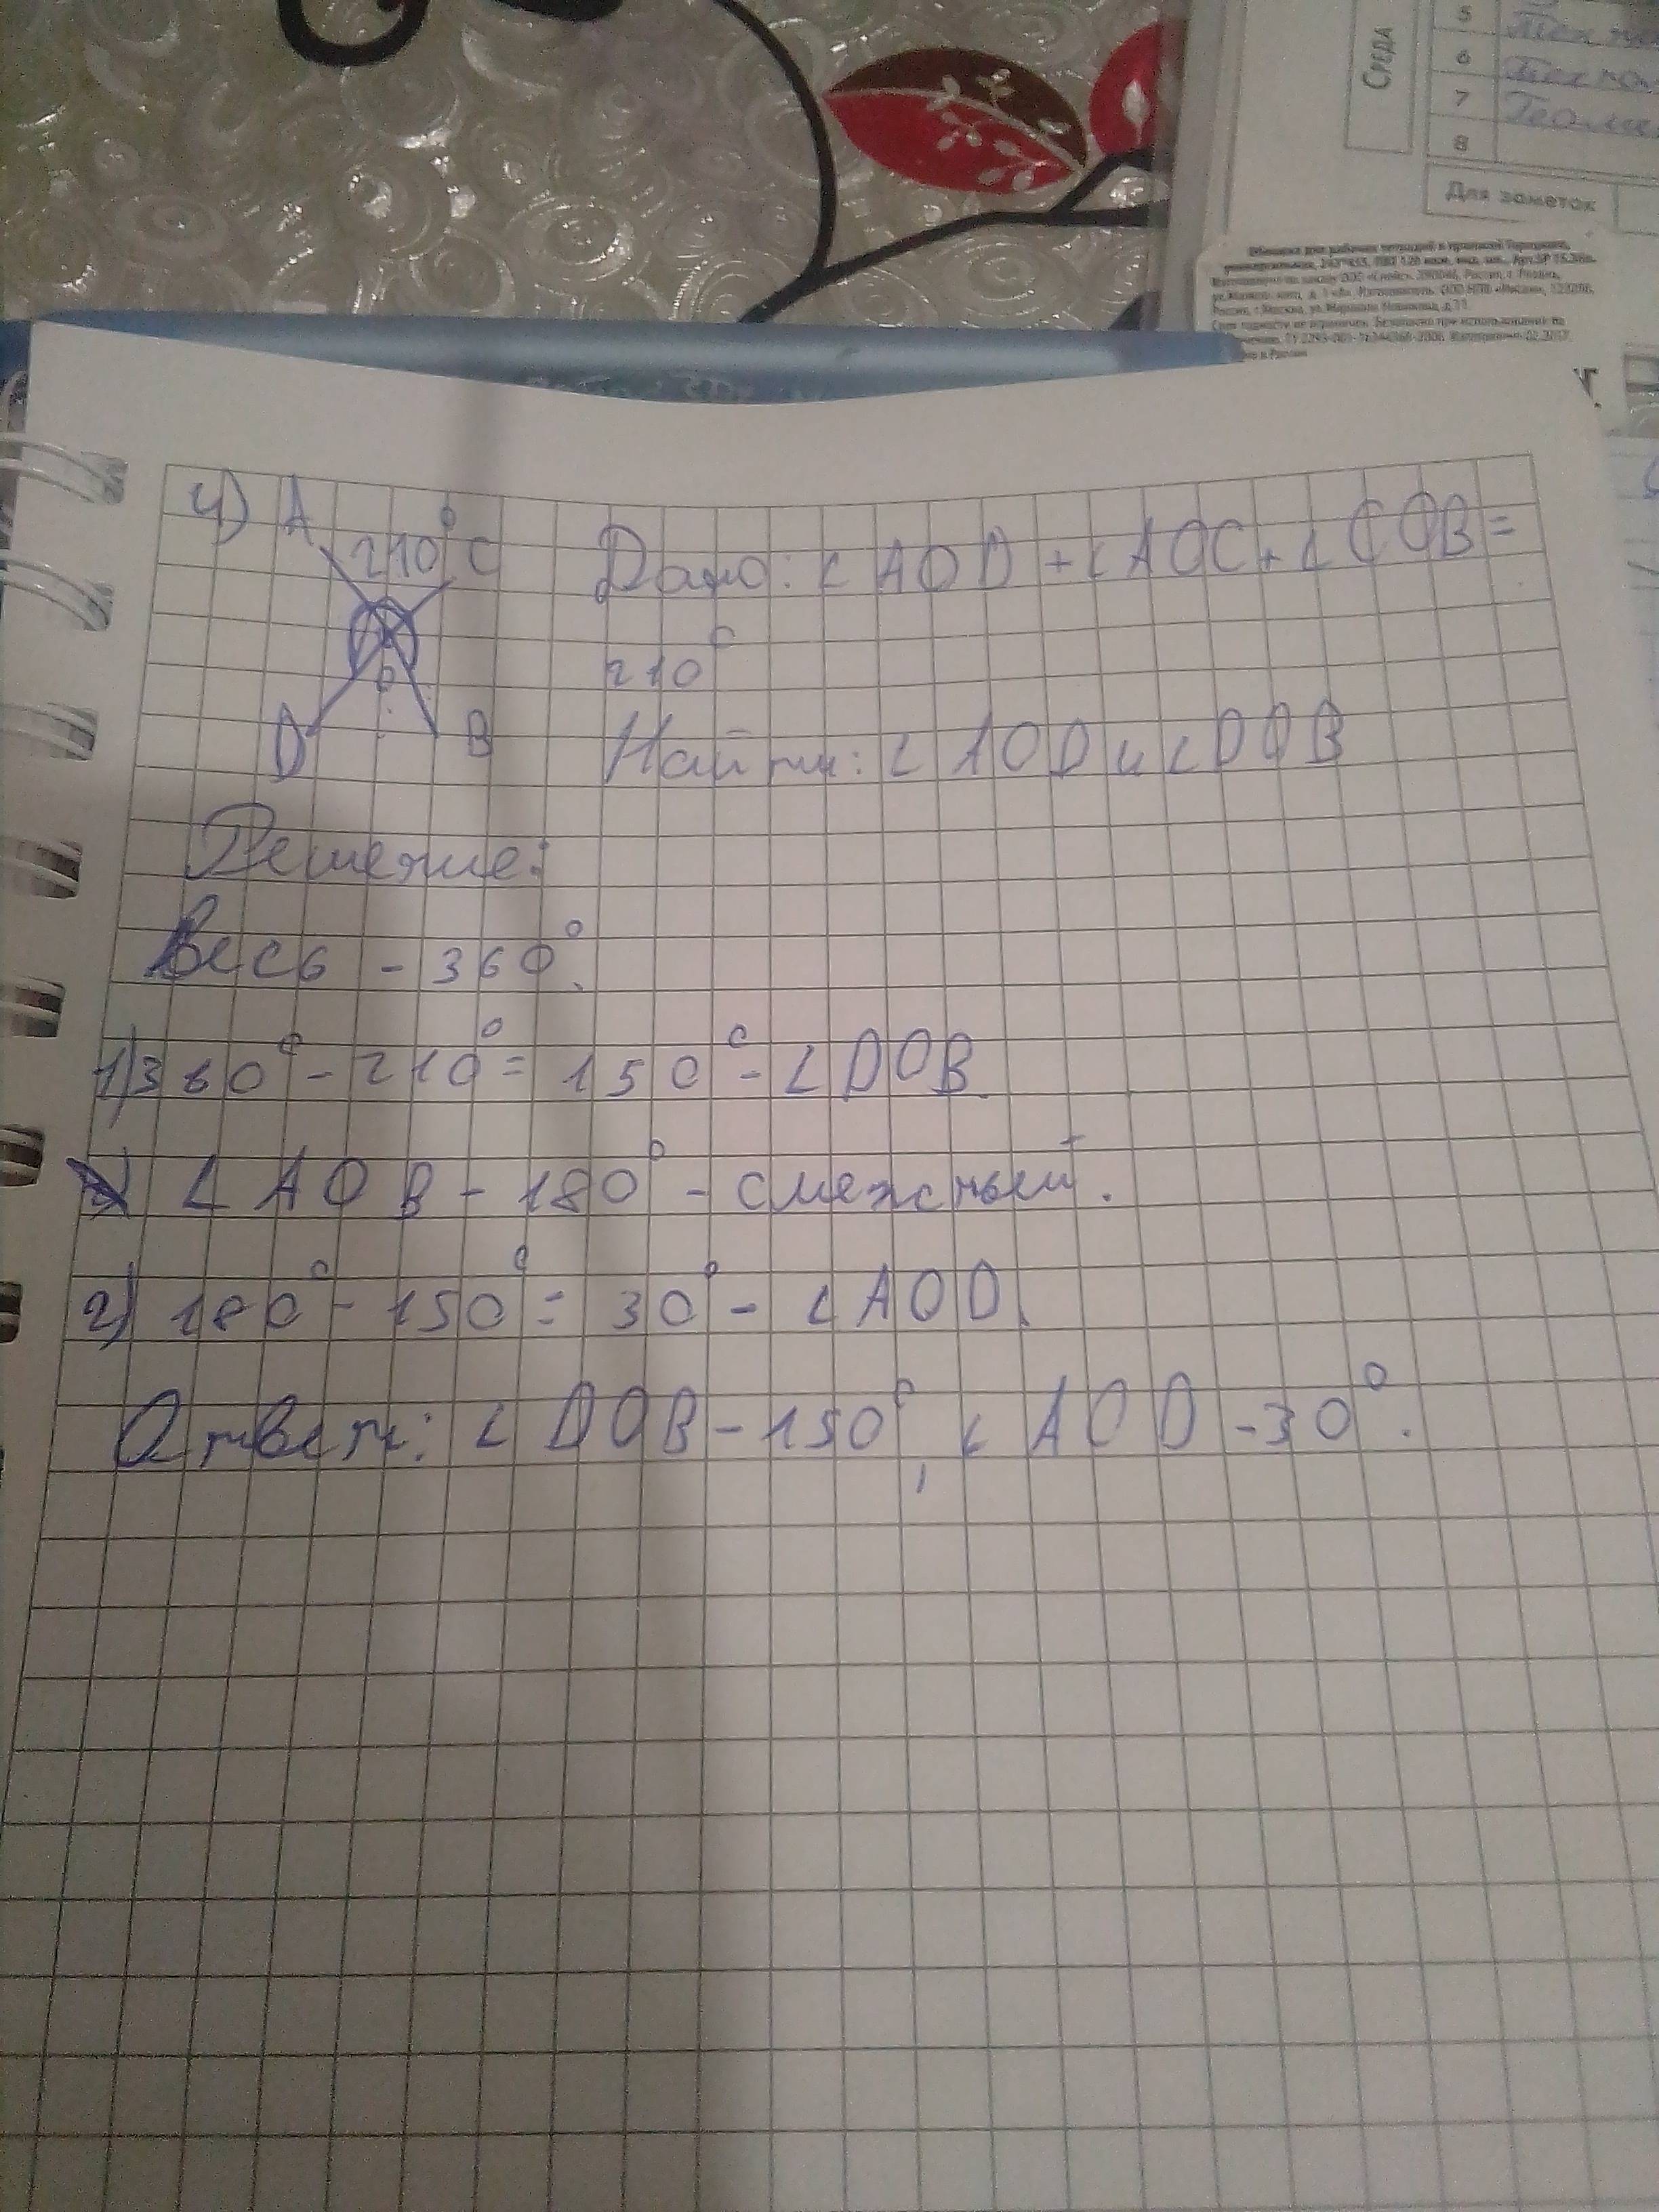 Среда
5
6
7
8
Для заметок
4) A 210° C
Дано: ∠AOD + ∠AOC + ∠COB =
210°
O
D B
Найти: ∠AOD и ∠DOB
Решение:
Весь - 360°.
1) 360° - 210° = 150° - ∠DOB
∠AOB - 180° - смежный.
2) 180° - 150° = 30° - ∠AOD.
Ответ: ∠DOB - 150°, ∠AOD - 30°.